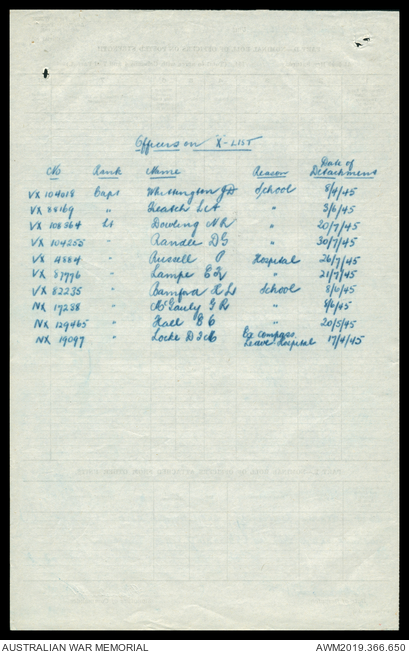 Officers on "X" - LIST
No Rank Name Reason Date of Detachment
VX 104018 Capt Whittington J D School 8/4/45
VX 88169 " L A " 3/6/45
VX 108364 Lt Dowling N R " 20/7/45
VX 104255 " Randle D G " 30/7/45
VX 14884 " Russell P Hospital 26/7/45
VX 87776 " Lampe E 21/7/45
VX 82235 " School 8/6/45
NX 17288 " McGauly G R " 8/6/45
NX 129465 " Hall B C " 20/5/45
NX 19097 " Locke D Ex compass. Leave Hospital 17/4/45
AUSTRALIAN WAR MEMORIAL AWM2019.366.650